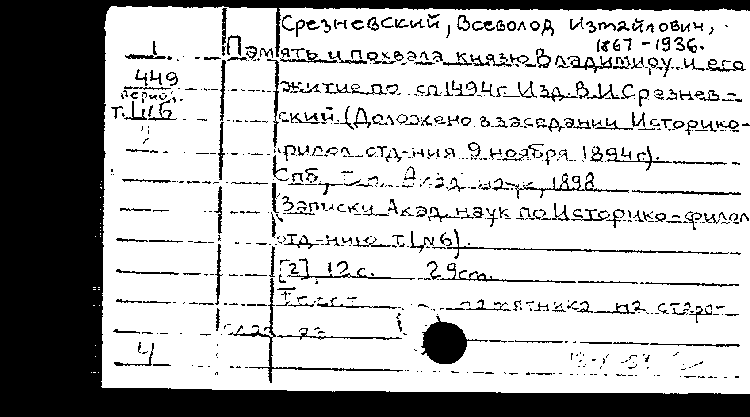 Срезневский, Всеволод Измайлович,
1867-1936.
1 Память и похвала князю Владимиру и его
449 житие по сп 1494г Изд. В.И Срезнев-
период.
т. 1, №6 ский. (Доложено в заседании Историко-
филол отд-ния 9 ноября 1894г).
Спб, тип. Акад наук, 1898
(Записки Акад. наук по Историко-филол
отд-нию т. 1, №6).
[2], 12 с. 29 cm.
Текст памятника на старо-
слав яз
4